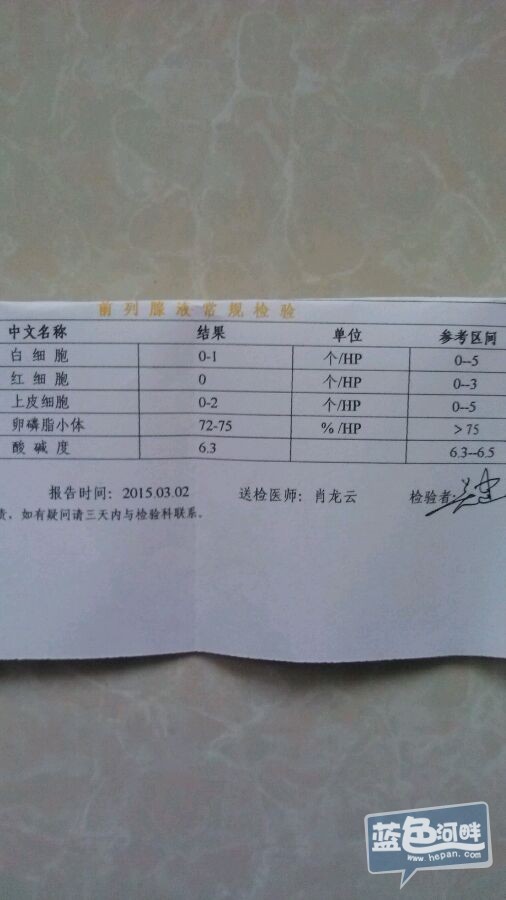 前列腺液常规检验
中文名称 结果 单位 参考区间
白细胞 0-1 个/HP 0--5
红细胞 0 个/HP 0--3
上皮细胞 0-2 个/HP 0--5
卵磷脂小体 72-75 %/HP >75
酸碱度 6.3 6.3--6.5
报告时间: 2015.03.02 送检医师: 肖龙云 检验者:
责，如有疑问请三天内与检验科联系。
蓝色河畔
www.hepan.com